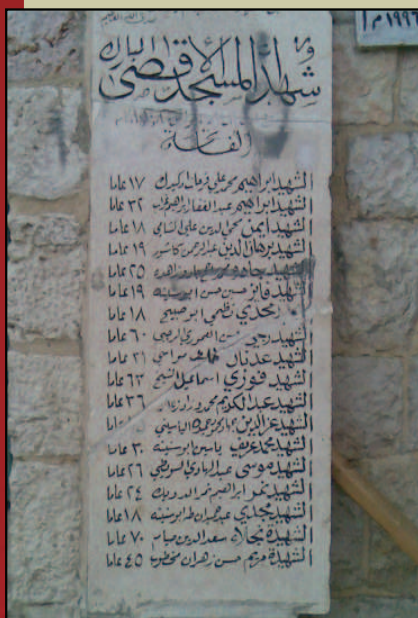 ١٩٩٦م
شهداء المسجد الأقصى المبارك
الفاتحة
الشهيد ابراهيم محمد علي فرحات ادكيدك ١٧ عاما
الشهيد ابراهيم عبد الغفار ابراهيم غراب ٣٢ عاما
الشهيد ايمن محي الدين علي الشامي ١٨ عاما
الشهيد برهان الدين عبد الرحمن كاشور ١٩ عاما
الشهيد ٢٥ عاما
الشهيد فايز حسين حسن ابو سنينه ١٩ عاما
مجدي نظمي ابو صبيح ١٨ عاما
الشهيد ربحي حسن العموري الرجبي ٦٠ عاما
الشهيد عدنان خلف مواسي ٢١ عاما
الشهيد فوزي اسماعيل الشيخ ٦٣ عاما
الشهيد عبد الكريم محمد ٣٦ عاما
الشهيد عز الدين الياسيني
الشهيد محمد عريف ياسين ابو سنينه ٣٠ عاما
الشهيد موسى عبد الهادي السويطي ٢٦ عاما
الشهيد نمر ابراهيم نمر الدويك ٢٤ عاما
الشهيد مجدي عبد ابو سنينه ١٨ عاما
الشهيدة نجلاء سعد الدين صيام ٧٠ عاما
الشهيدة مريم حسن زهران مخطوب ٤٥ عاما